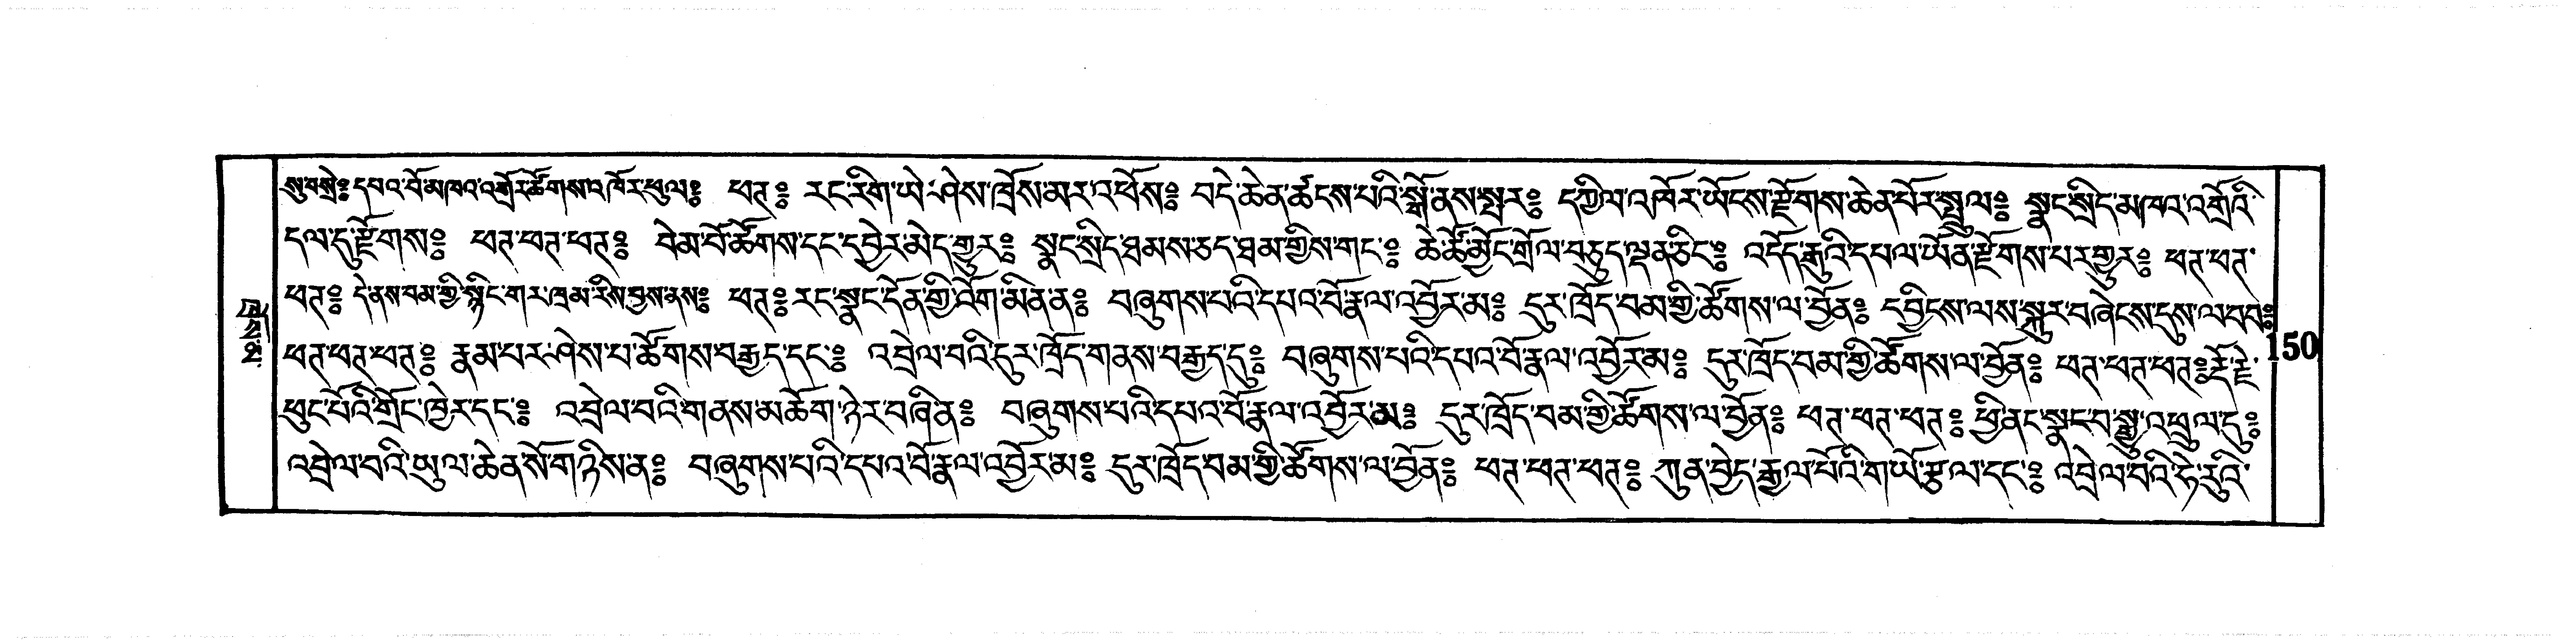 སུ་བསྲེ༔ དཔའ་བོ་མཁའ་འགྲོར་ཚོགས་འཁོར་ཕུལ༔ ཕཊ༔ རང་རིག་ཡེ་ཤེས་ཁྲོས་མར་འཕོས༔ བདེ་ཆེན་ཚངས་པའི་སྒོ་ནས་སྤར༔ དཀྱིལ་འཁོར་ཡོངས་རྫོགས་ཆེན་པོར་སྤྲུལ༔ སྣང་སྲིད་མཁའ་འགྲོའི་
དལ་དུ་རྫོགས༔ ཕཊ་ཕཊ་ཕཊ༔ བེམ་པོ་ཚོགས་དང་དབྱེར་མེད་གྱུར༔ སྣང་སྲིད་ཐམས་ཅད་ཐམ་གྱིས་གང་༔ ཆེ་ཚོ་མྱོང་གྲོལ་བཅུད་ལྡན་ཅིང་༔ འདོད་རྒུའི་དཔལ་ཡོན་རྫོགས་པར་གྱུར༔ ཕཊ་ཕཊ་
ཕཊ༔ དེ་ནས་བམ་གྱི་སྙིང་གར་ཁྲམ་རིས་བྱས་ནས༔ ཕཊ༔ རང་སྣང་དོན་གྱི་འོག་མིན་ན༔ བཞུགས་པའི་དཔའ་བོ་རྣལ་འབྱོར་མ༔ དུར་ཁྲོད་བམ་གྱི་ཚོགས་ལ་བྱོན༔ དབྱིངས་ལས་སྐུར་བཞེངས་དུས་ལ་བབ༔
ཕཊ་ཕཊ་ཕཊ༔ རྣམ་པར་ཤེས་པ་ཚོགས་བརྒྱད་དང་༔ འབྲེལ་བའི་དུར་ཁྲོད་གནས་བརྒྱད་དུ༔ བཞུགས་པའི་དཔའ་བོ་རྣལ་འབྱོར་མ༔ དུར་ཁྲོད་བམ་གྱི་ཚོགས་ལ་བྱོན༔ ཕཊ་ཕཊ་ཕཊ༔ རྡོ་རྗེ་
150
ཕུང་པོའི་གྲོང་ཁྱེར་དང་༔ འབྲེལ་བའི་གནས་མཆོག་ཉེར་བཞིན༔ བཞུགས་པའི་དཔའ་བོ་རྣལ་འབྱོར་མ༔ དུར་ཁྲོད་བམ་གྱི་ཚོགས་ལ་བྱོན༔ ཕཊ་ཕཊ་ཕཊ༔ ཕྱི་ནང་སྣང་བ་སྒྱུ་འཕྲུལ་དུ༔
འབྲེལ་བའི་ཡུལ་ཆེན་སོ་གཉིས་ན༔ བཞུགས་པའི་དཔའ་བོ་རྣལ་འབྱོར་མ༔ དུར་ཁྲོད་བམ་གྱི་ཚོགས་ལ་བྱོན༔ ཕཊ་ཕཊ་ཕཊ༔ ཀུན་བྱེད་རྒྱལ་པོའི་གཡོ་རྩལ་དང་༔ འབྲེལ་བའི་ཧེ་རུའི་